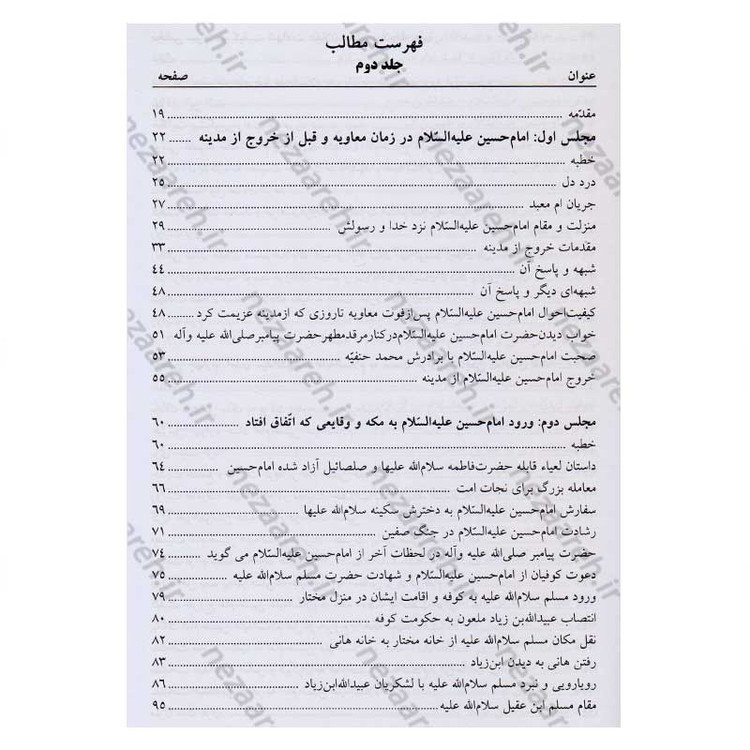 فهرست مطالب
جلد دوم
عنوان صفحه
مقدّمه ۱۹
مجلس اول: امام‌حسین علیه‌السّلام در زمان معاویه و قبل از خروج از مدینه ۲۲
خطبه ۲۲
درد دل ۲۵
جریان ام معبد ۲۷
منزلت و مقام امام‌حسین علیه‌السّلام نزد خدا و رسولش ۲۹
مقدمات خروج از مدینه ۳۳
شبهه و پاسخ آن ۴۴
شبهه‌ای دیگر و پاسخ آن ۴۸
کیفیت‌احوال امام‌حسین علیه‌السّلام پس‌ازفوت معاویه تاروزی که ازمدینه عزیمت کرد ۴۸
خواب دیدن‌حضرت امام‌حسین علیه‌السّلام‌درکنارمرقدمطهرحضرت پیامبرصلی‌الله علیه وآله ۵۱
صحبت امام‌حسین علیه‌السّلام با برادرش محمد حنفیّه ۵۳
خروج امام‌حسین علیه‌السّلام از مدینه ۵۵
مجلس دوم: ورود امام‌حسین علیه‌السّلام به مکه و وقایعی که اتّفاق افتاد ۶۰
خطبه ۶۰
داستان لعیاء قابله حضرت‌فاطمه سلام‌الله علیها و صلصائیل آزاد شده امام‌حسین ۶۴
معامله بزرگ برای نجات امت ۶۶
سفارش امام‌حسین علیه‌السّلام به دخترش سکینه سلام‌الله علیها ۶۹
رشادت امام‌حسین علیه‌السّلام در جنگ صفین ۷۱
حضرت پیامبر صلی‌الله علیه وآله در لحظات آخر از امام‌حسین علیه‌السّلام می گوید ۷۴
دعوت کوفیان از امام‌حسین علیه‌السّلام و شهادت حضرت مسلم سلام‌الله علیه ۷۵
ورود مسلم سلام‌الله علیه به کوفه و اقامت ایشان در منزل مختار ۷۹
انتصاب عبیدالله‌بن زیاد ملعون به حکومت کوفه ۸۰
نقل مکان مسلم سلام‌الله علیه از خانه مختار به خانه هانی ۸۲
رفتن هانی به دیدن ابن‌زیاد ۸۳
رویارویی و نبرد مسلم سلام‌الله علیه با لشکریان عبیدالله‌ابن‌زیاد ۸۶
مقام مسلم ابن عقیل سلام‌الله علیه ۹۵
nezaareh.ir